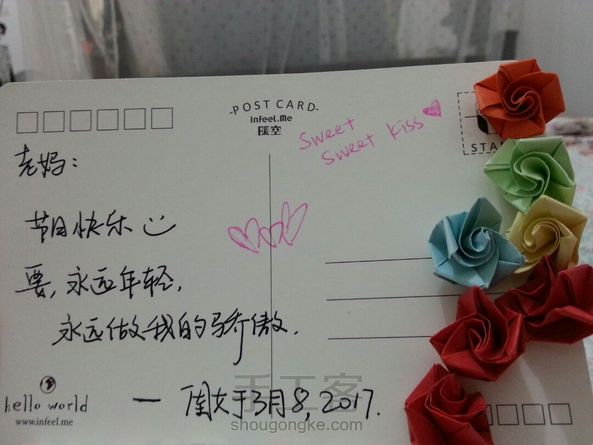 POST CARD
Infeel.Me
暖空
sweet
sweet kiss
STA
老妈:
节日快乐
要,永远年轻,
永远做我的骄傲.
— 闺女于3月8, 2017.
hello world
www.infeel.me
手工客
shougongke.com